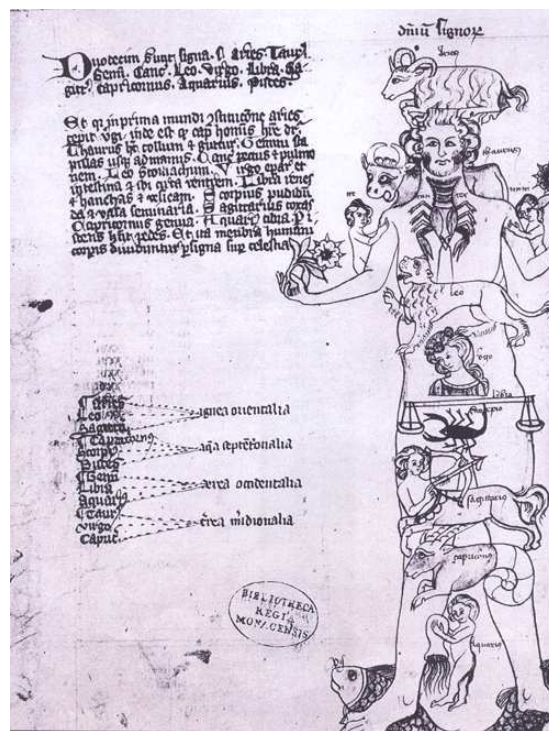 Duodecim sunt signa. s. aries. Taur
Gemi. Canc. Leo. Virgo. Libra.
capricornus. Aquarius. Pisces.
Et qr in prima mundi aries
cepit inde est qr cap hominis hre dr.
Thaurus hc collum & guttur. Gemini
usq ad manus. Canc pectus & pulmo
nem. Leo stomachum. Virgo epar et
intestina & ventrem. Libra renes
& hanchas & vesicam. Scorpius
& vasa seminaria. Sagitarius coxas
Capricornus genua. Aquari tibia
pedes. Et ita membra humani
corpis dividuntur signa sup celestia
Aries
Leo
Sagitt
Capricornus
Scorp
Pisces
Gemi
Libra
Aquari
Taur
Virgo
ignea orientalia
aqa septetrionalia
aerea occidentalia
trea midionalia
BIBLIOTHECA
REGIA
MONACENSIS
signor
aries
thaurus
can cer
leo
virgo
libra
scorpio
sagitarius
capricornus
aquarius